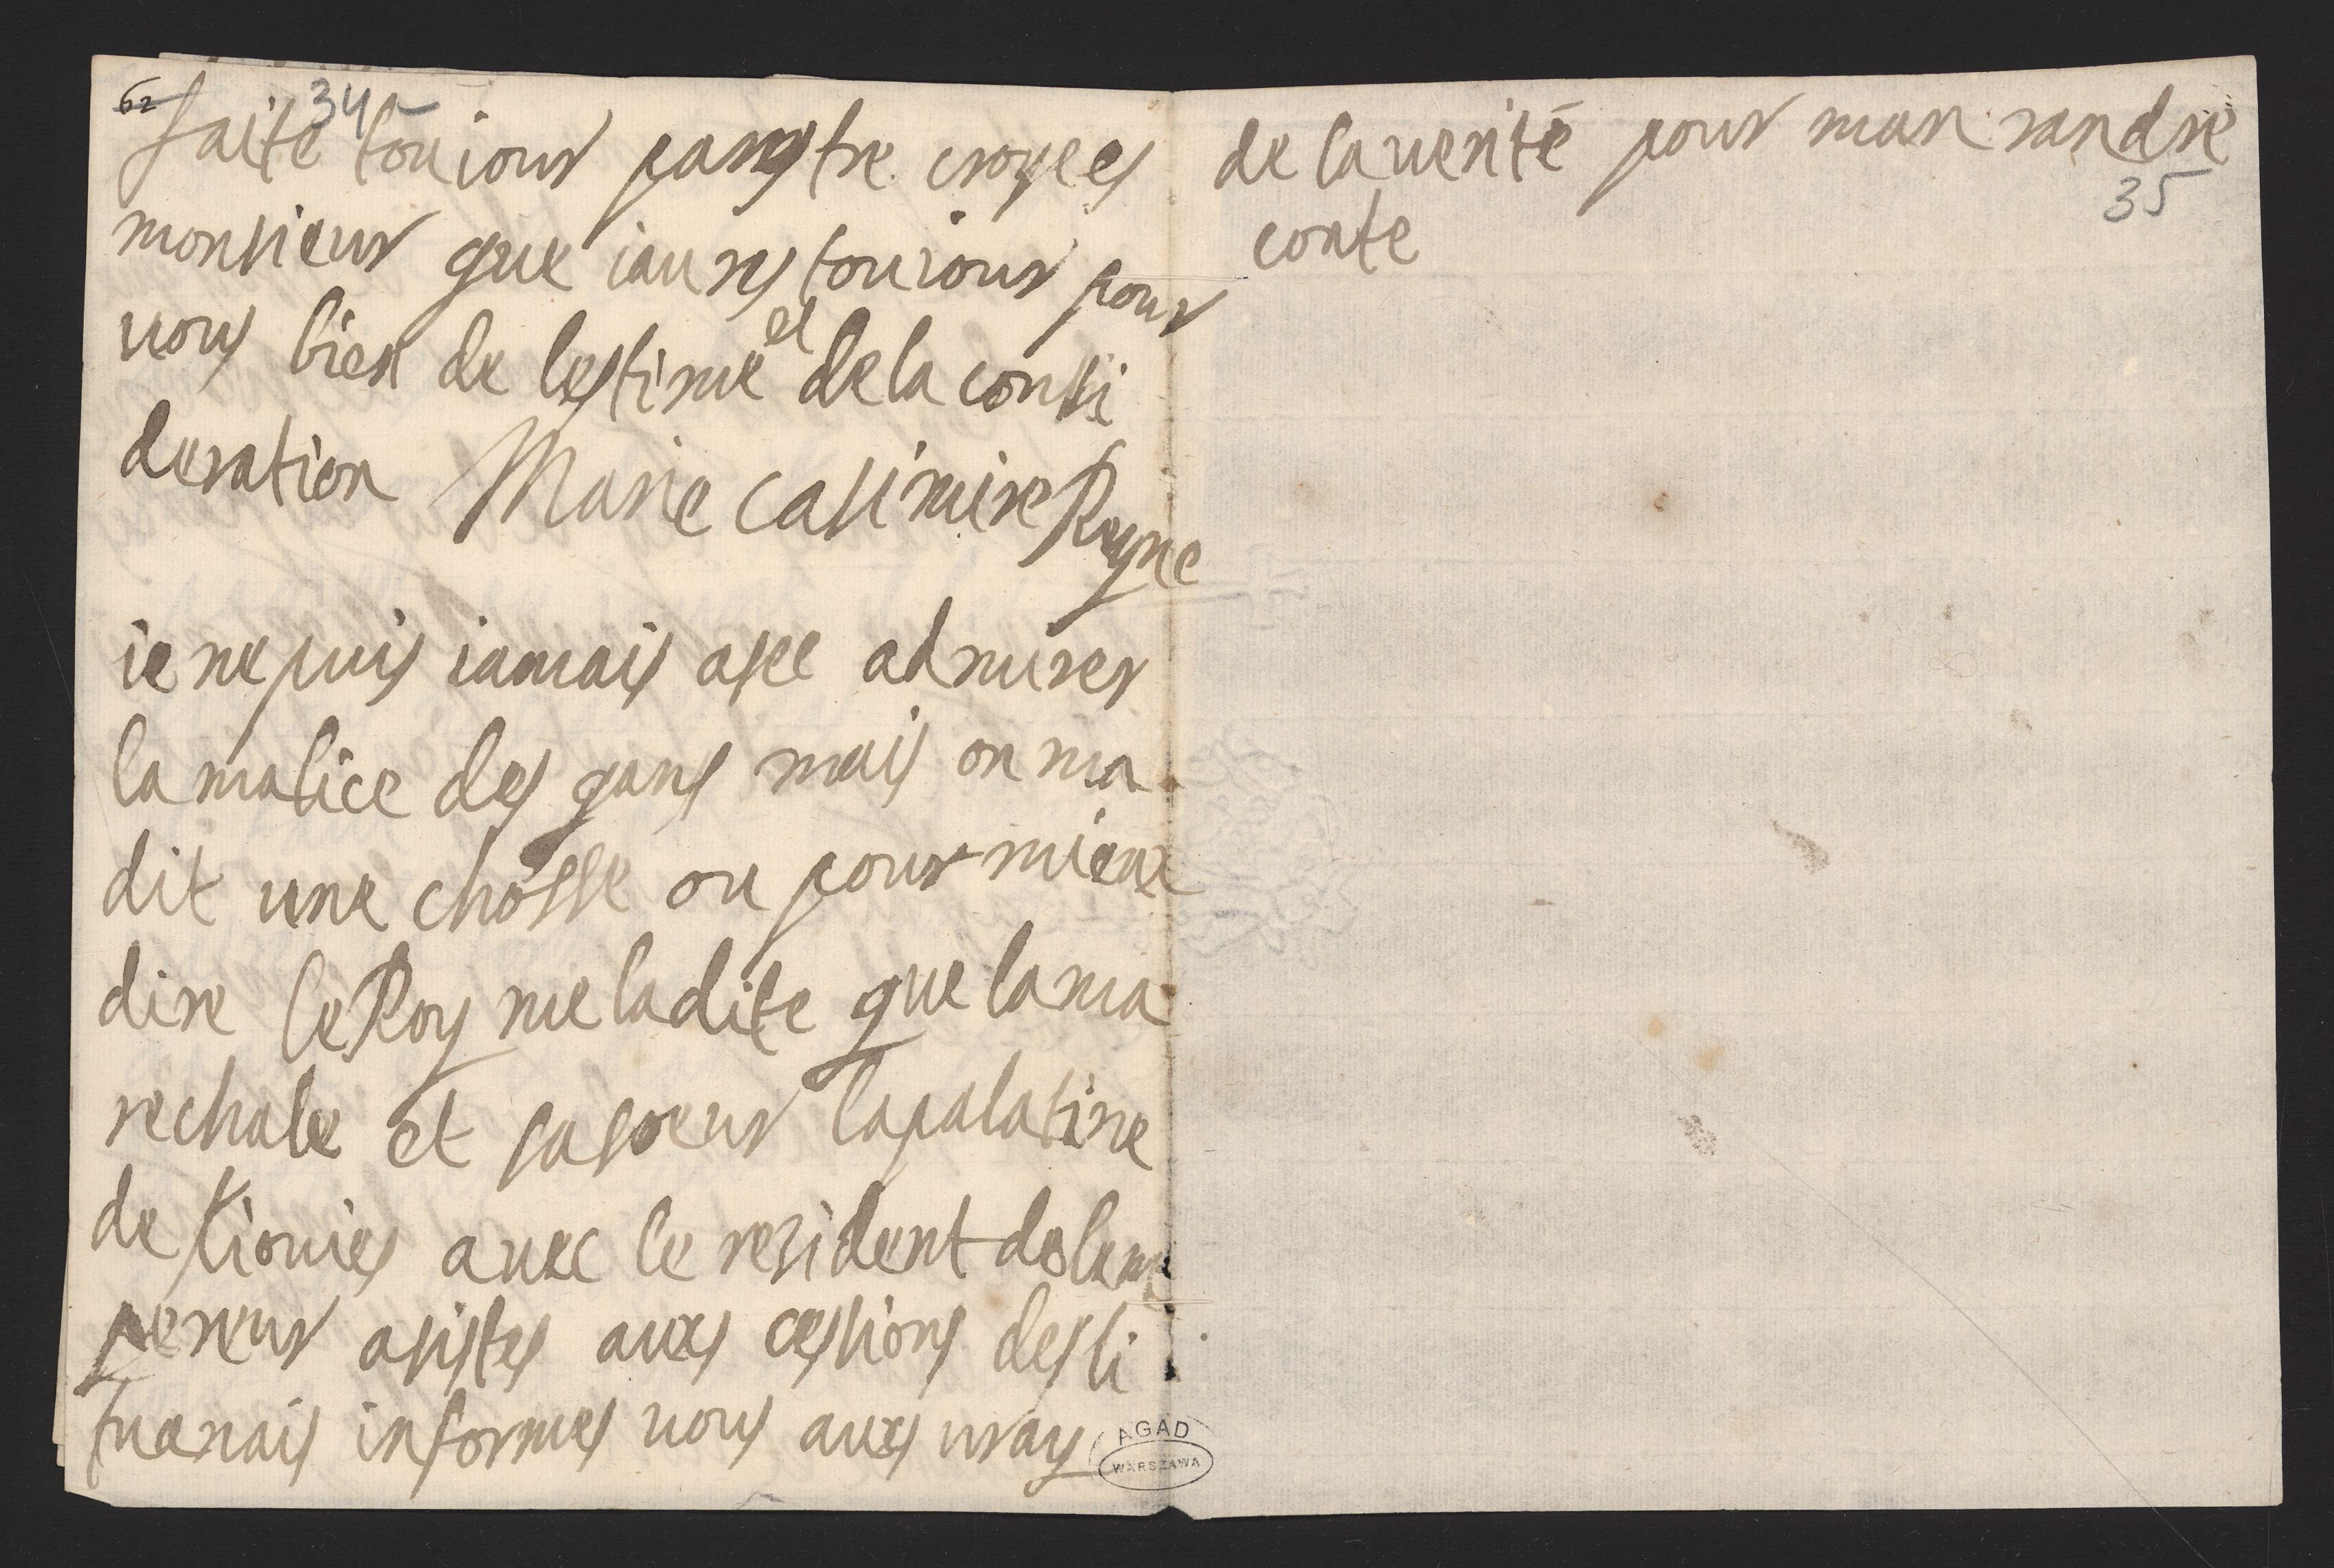 62
34
faite toujour parestre croyees
monsieur que iaures toujour pour
vous bien de lestime et de la consi
deration Marie Casimire Reyne
ie ne puis iamais asee admirer
la malice des gans mais on ma
dit une chosse ou pour mieux
dire le Roy me la dite que la ma
rechale et sa soeur la palatine
de Kiovies avec le resident de lem
pereur asistes auxs cessions des li
tuanais informes vous auxs vray
AGAD
WARSZAWA
de la verité pour man randre
35
conte